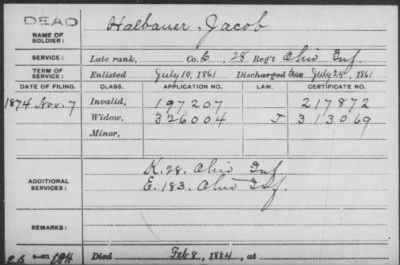 DEAD
NAME OF SOLDIER: Halbauer, Jacob
SERVICE: Late rank, Co. 6, 28 Reg't Ohio Inf.
TERM OF SERVICE: Enlisted July 10, 1861 Discharged July 24, 1861
DATE OF FILING. CLASS. APPLICATION NO. LAW. CERTIFICATE NO.
1874 Nov. 7 Invalid, 197207 217872
Widow, 326004 J 313069
Minor,
K. 28. Ohio Inf
ADDITIONAL SERVICES: E. 183. Ohio Inf.
REMARKS:
Died Feb 8, 1884, at